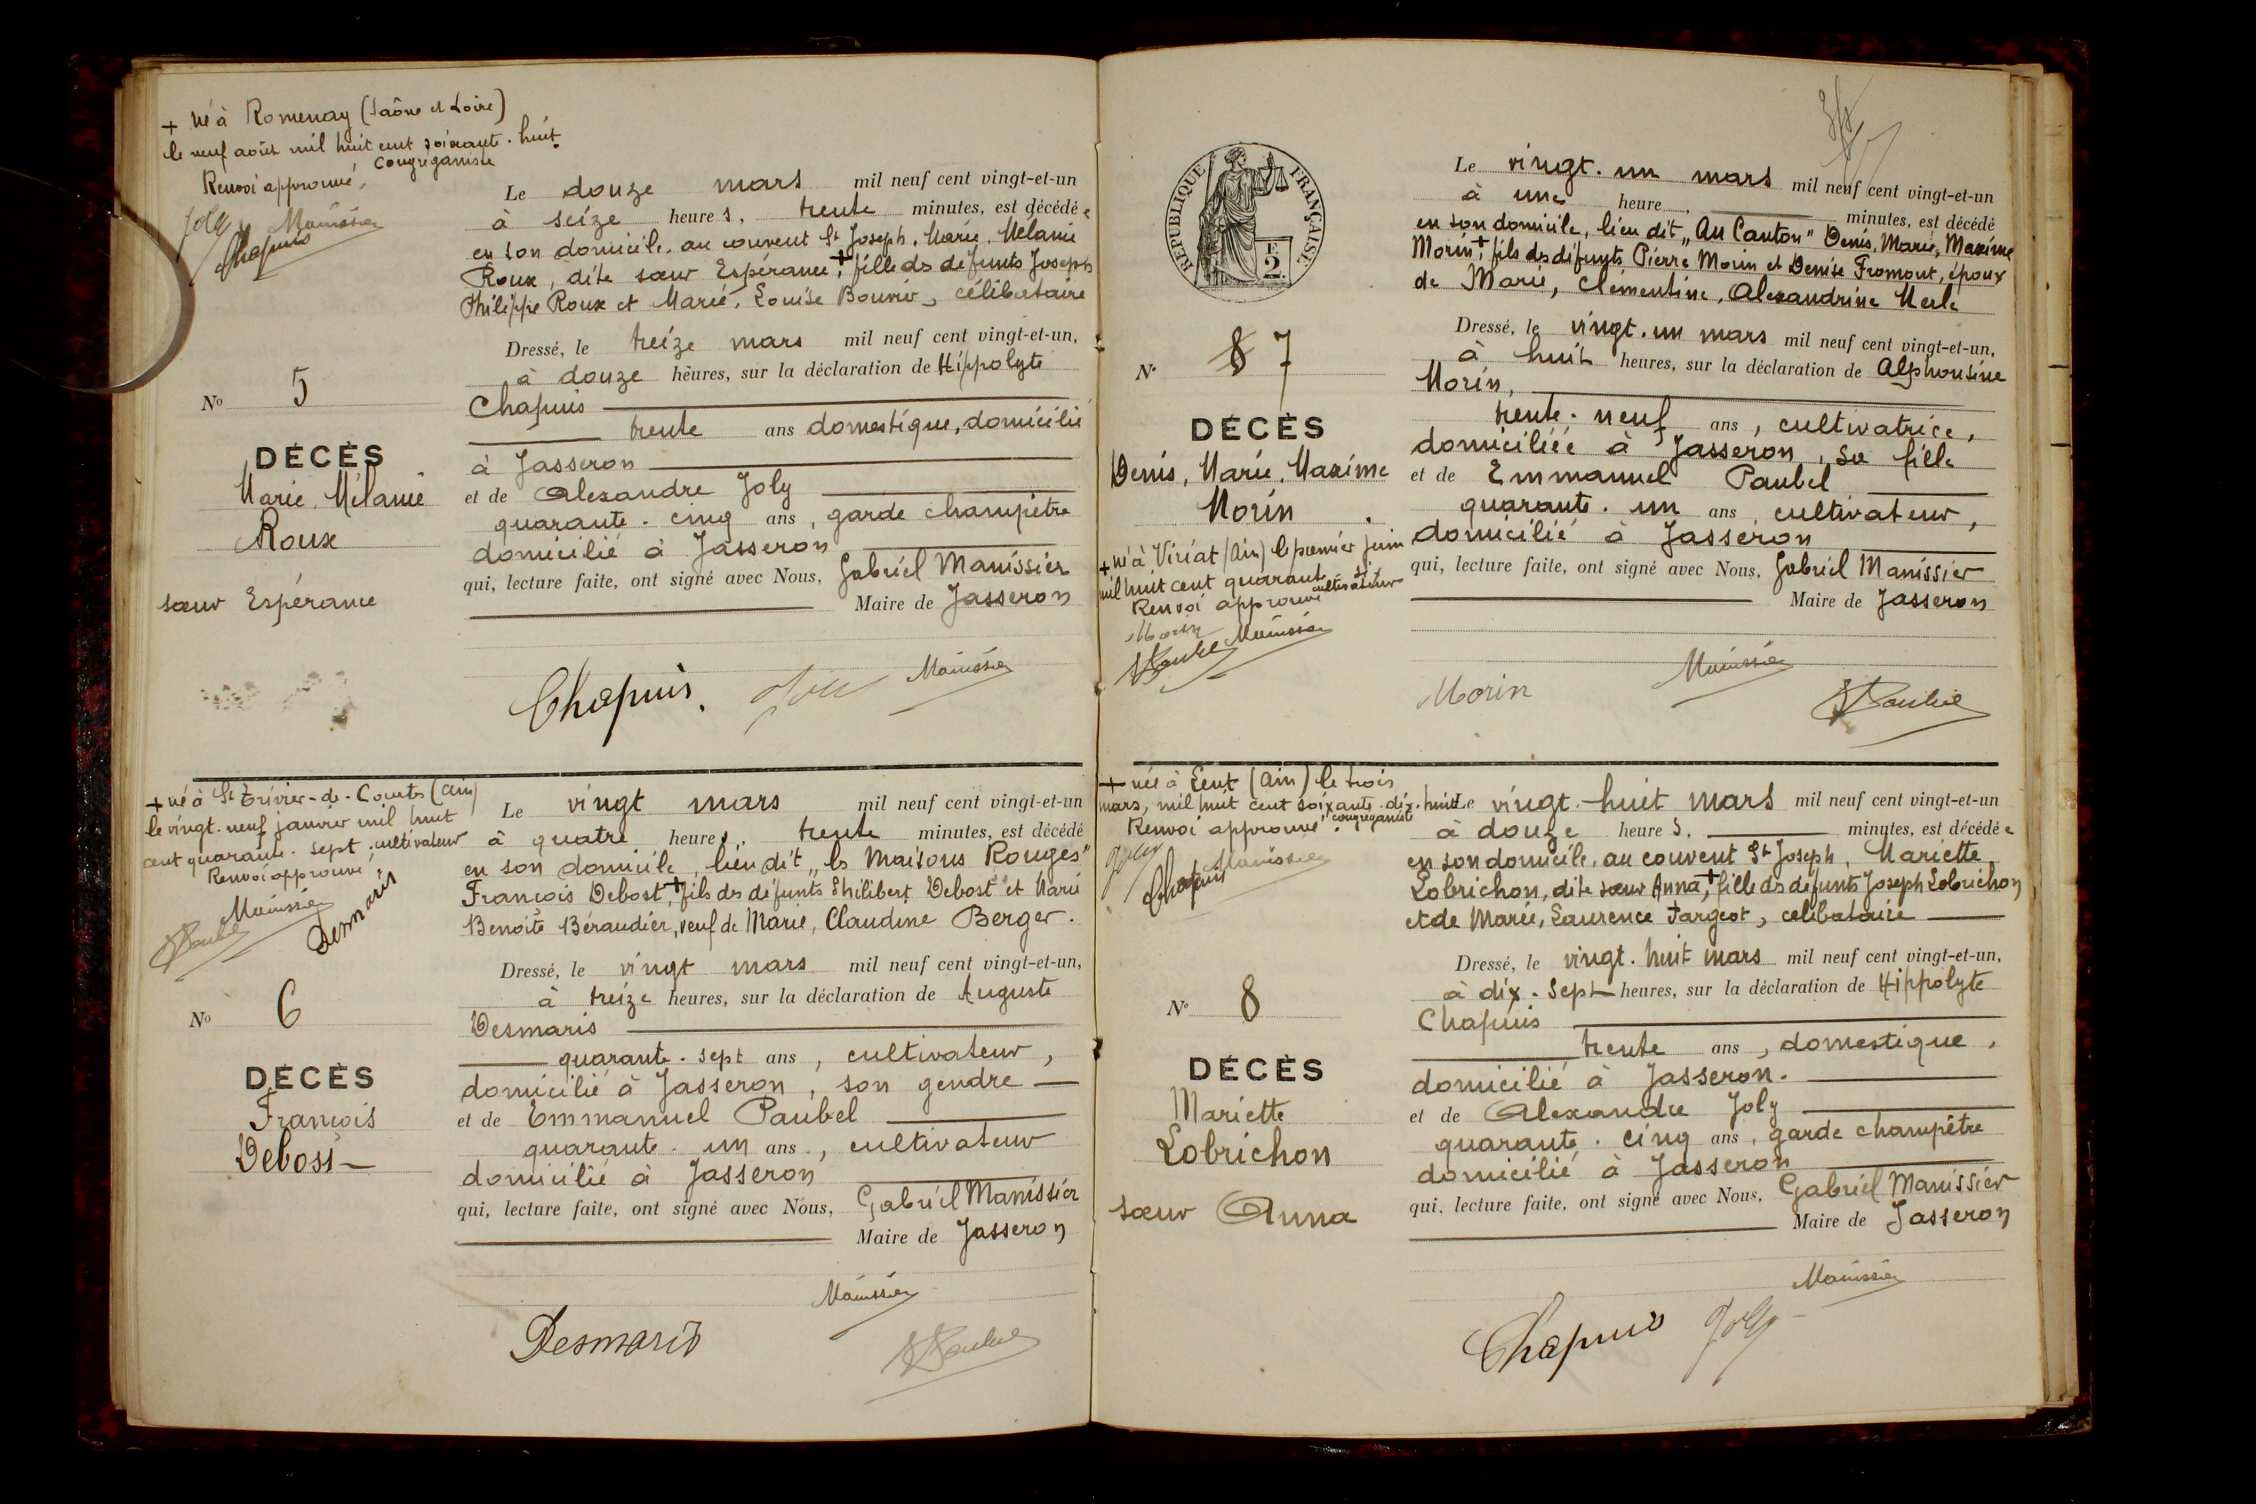 + né à Romenay (Saône et Loire)
le neuf août mil huit cent soixante-huit.
congréganiste
Renvoi approuvé,
Joly Manissier
Chapuis
Le douze mars mil neuf cent vingt-et-un
à seize heures, trente minutes, est décédée
en son domicile, au couvent St Joseph, Marie, Mélanie
Roux, dite sœur Espérance,+ fille des défunts Joseph
Philippe Roux et Marie, Louise Bouvier, célibataire
Dressé, le treize mars mil neuf cent vingt-et-un,
à douze heures, sur la déclaration de Hippolyte
Chapuis
trente ans domestique, domicilié
à Jasseron
et de Alexandre Joly
quarante-cinq ans, garde champêtre
domicilié à Jasseron
qui, lecture faite, ont signé avec Nous, Gabriel Manissier
Maire de Jasseron
No 5
DÉCÈS
Marie, Mélanie
Roux
sœur Espérance
Chapuis. Joly Manissier
+ né à St Trivier-de-Courtes (Ain)
le vingt-neuf janvier mil huit
cent quarante-sept, cultivateur
Renvoi approuvé,
Manissier
Paubel Desmaris
Le vingt mars mil neuf cent vingt-et-un
à quatre heures, trente minutes, est décédé
en son domicile, lieu dit "les Maisons Rouges"
François Debost,+ fils des défunts Philibert Debost et Marie
Benoîte Béraudier, veuf de Marie, Claudine Berger.
Dressé, le vingt mars mil neuf cent vingt-et-un,
à treize heures, sur la déclaration de Auguste
Desmaris
quarante-sept ans, cultivateur,
domicilié à Jasseron, son gendre
et de Emmanuel Paubel
quarante-un ans, cultivateur
domicilié à Jasseron
qui, lecture faite, ont signé avec Nous, Gabriel Manissier
Maire de Jasseron
No 6
DÉCÈS
François
Debost
Manissier
Desmaris Paubel
RÉPUBLIQUE FRANÇAISE.
F.
2
Le vingt-un mars mil neuf cent vingt-et-un
à une heure, minutes, est décédé
en son domicile, lieu dit "Au Canton" Denis, Marie, Maxime
Morin,+ fils des défunts Pierre Morin et Denise Fromont, époux
de Marie, Clémentine, Alexandrine Merle
Dressé, le vingt-un mars mil neuf cent vingt-et-un,
à huit heures, sur la déclaration de Alphonsine
Morin,
trente-neuf ans, cultivatrice,
domiciliée à Jasseron, sa fille
et de Emmanuel Paubel
quarante-un ans cultivateur,
domicilié à Jasseron
qui, lecture faite, ont signé avec Nous, Gabriel Manissier
Maire de Jasseron
No 8 7
DÉCÈS
Denis, Marie, Maxime
Morin
+ né à Viriat (Ain) le premier juin
mil huit cent quarante-
cultivateur
Renvoi approuvé
Morin
Paubel Manissier
Manissier
Morin Paubel
+ née à Lent (Ain) le trois
mars, mil huit cent soixante-dix-huit
congréganiste
Renvoi approuvé.
Joly Manissier
Chapuis
Le vingt-huit mars mil neuf cent vingt-et-un
à douze heures, minutes, est décédée
en son domicile, au couvent St Joseph, Mariette
Lobrichon, dite sœur Anna,+ fille des défunts Joseph Lobrichon
et de Marie, Laurence Fargeot, célibataire
Dressé, le vingt-huit mars mil neuf cent vingt-et-un,
à dix-sept heures, sur la déclaration de Hippolyte
Chapuis
trente ans, domestique,
domicilié à Jasseron.
et de Alexandre Joly
quarante-cinq ans, garde champêtre
domicilié à Jasseron
qui, lecture faite, ont signé avec Nous, Gabriel Manissier
Maire de Jasseron
No 8
DÉCÈS
Mariette
Lobrichon
sœur Anna
Manissier
Chapuis Joly